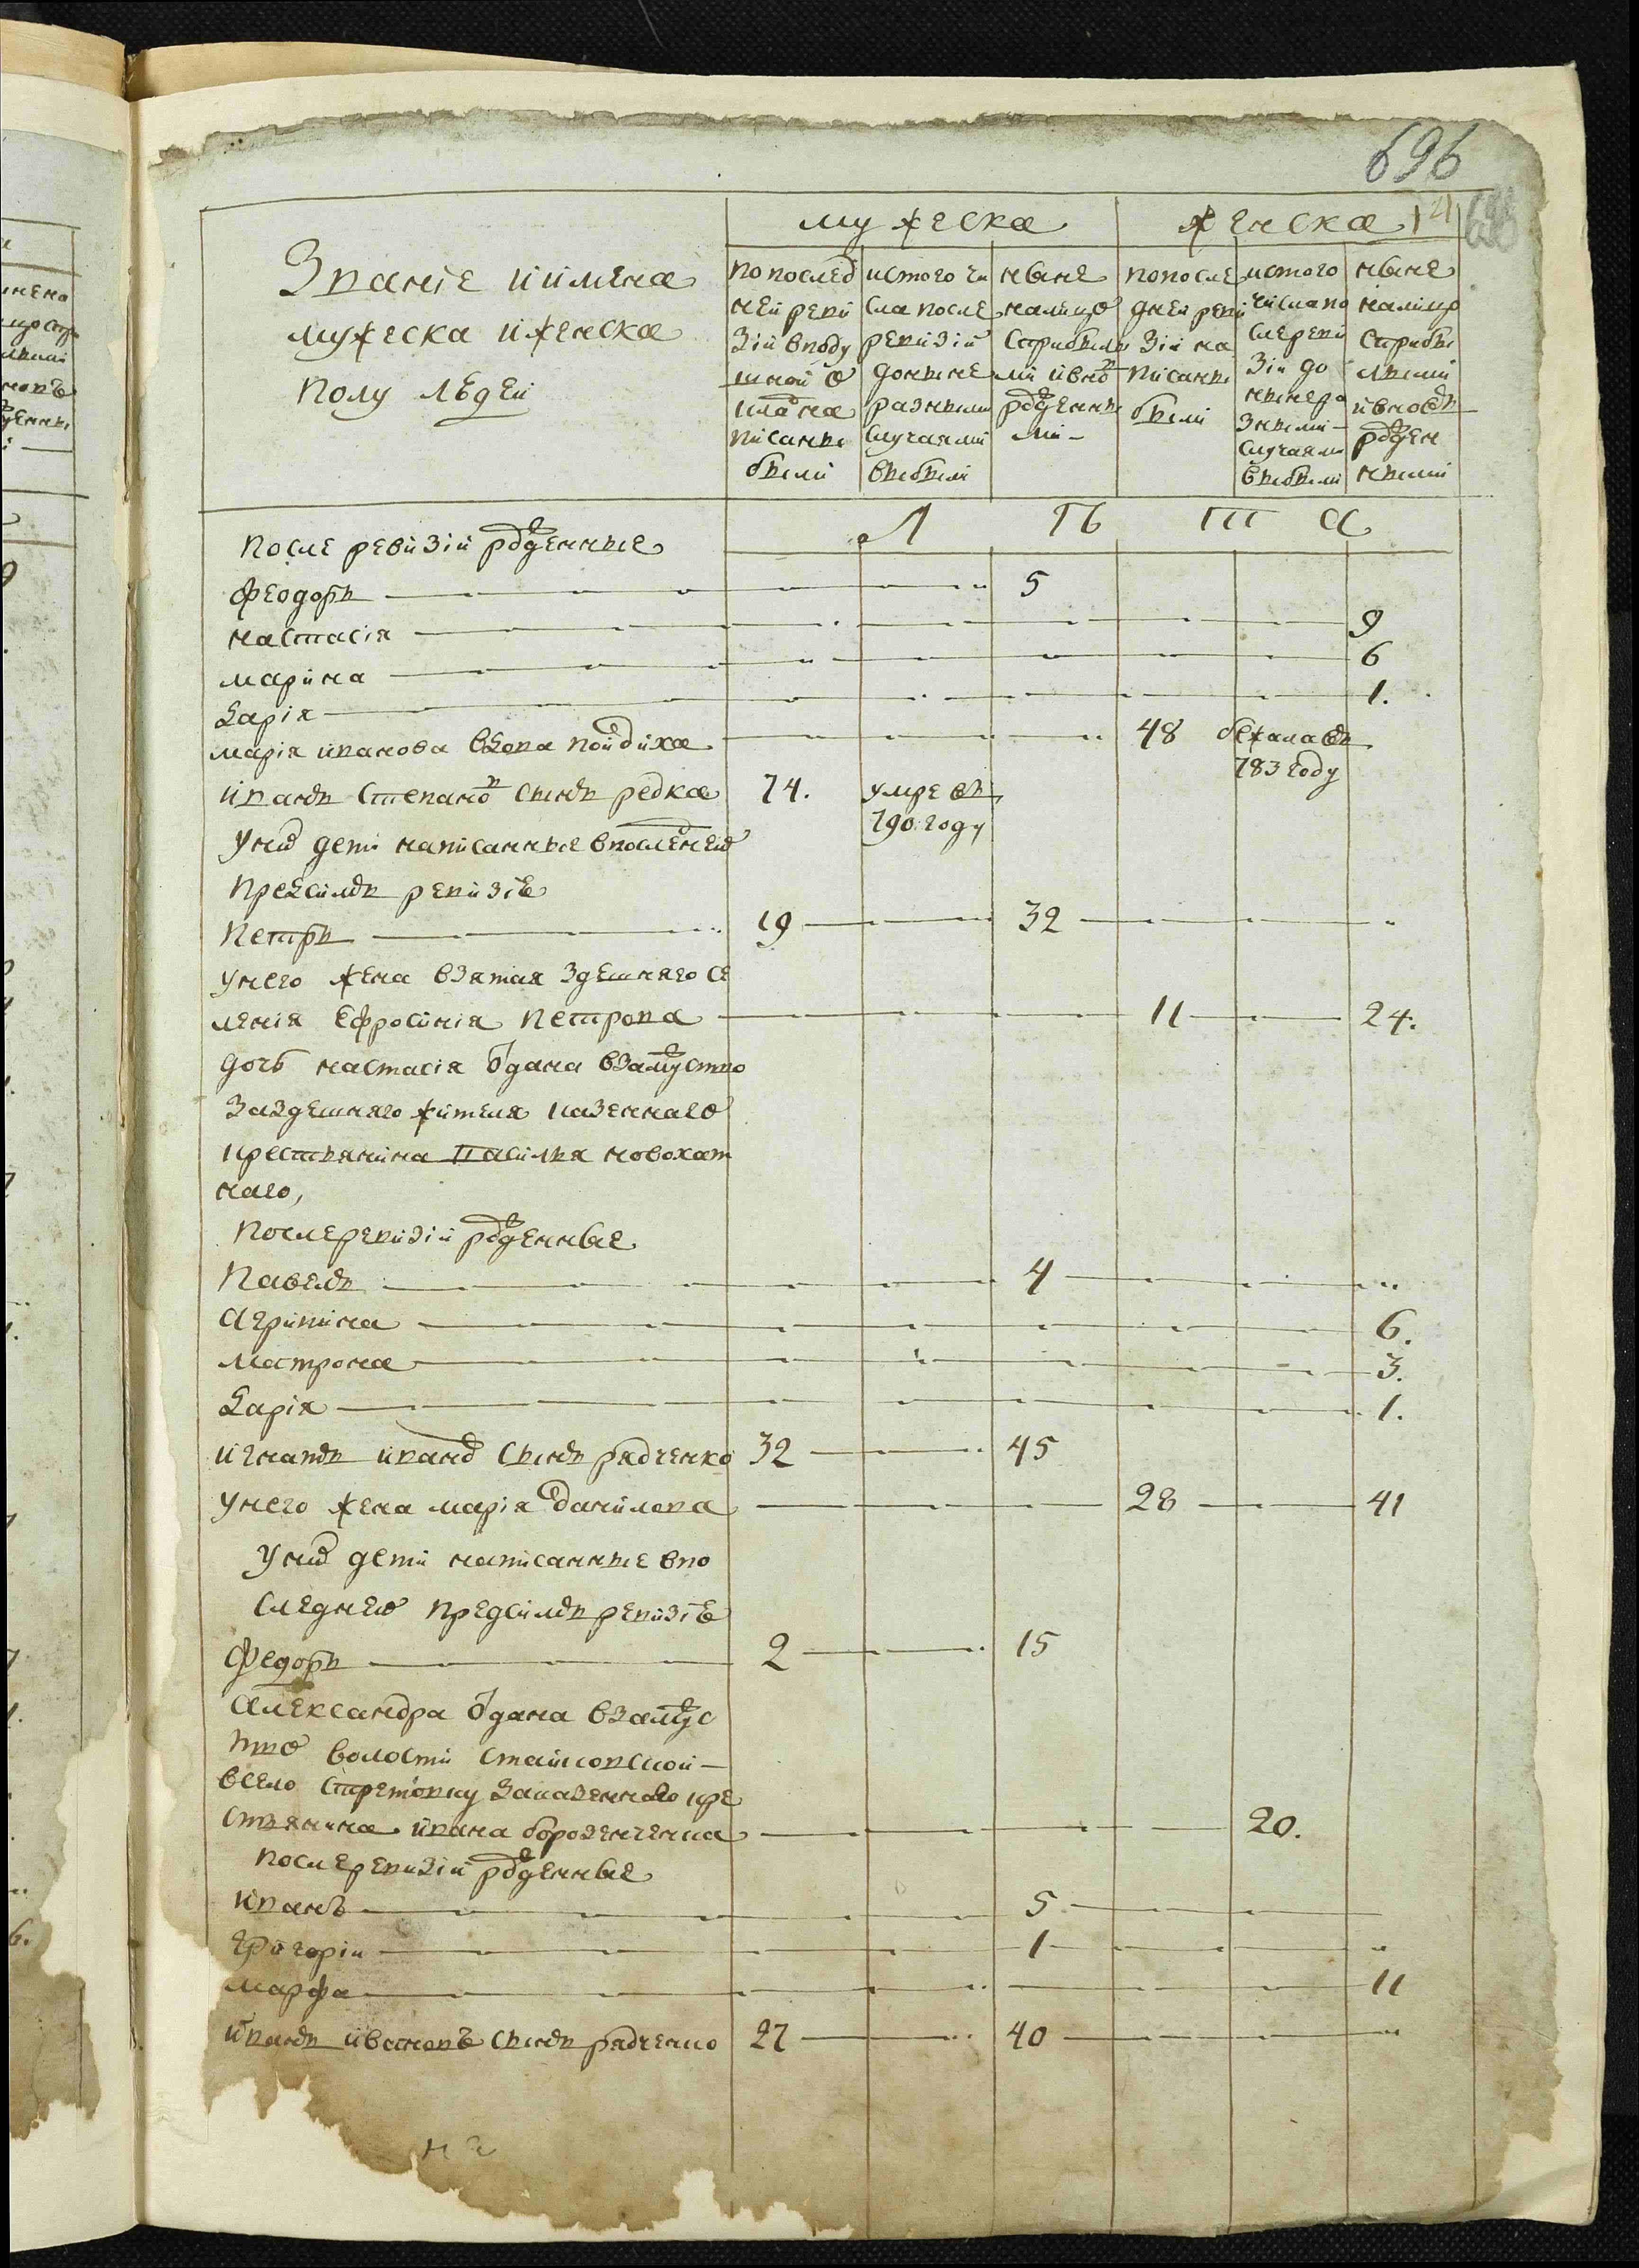 696
14
мужеска
женска
Званіе иимена
мужеска иженска
полу людеи
попослед
неи реви
зіи вподу
шнои о
кладна
писаны
были
истого чи
сла после
ревизіи
доныне
разными
случаями
выбыли
ныне
налицо
сприбылы
ми ивновь
рожденны
ми
попосле
днеи реви
зіи на
писаны
были
истого
числапо
слереви
зіи до
ныне ра
зными
случаями
выбыли
ныне
налицо
сприбы
лыми
ивновь
рожден
ными
Л ѣ т а
после ревизіи рожденные
феодоръ 5
настасія 9
марина 6
дарія 1.
марія иванова вдова 48 бежала въ
783 году
иванъ степановъ сынъ редка 74. умре въ
790 году
уних дети написанные впоследнеи
предсимъ ревизіе
петръ 19 32
унего жена взятая здешняго се
ленія ефросинія петрова 11 24.
дочь настасія отдана взамужство
заздешняго жителя казеннаго
крестьянина василья новохат
наго,
послеревизіи рожденные
павелъ 4
агрипина 6.
матрона 3.
дарія 1.
игнатъ иванов сынъ радченко 32 45
унего жена марія данилова 28 41
уних дети написанные впо
следнеи предсимъ ревизіе
федоръ 2 15
александра отдана взамужс
тво волости
всело заказеннаго кре
стьянина ивана бороденченка 20.
послеревизіи рожденные
иванъ 5
григоріи 1
марфа 11
иванъ ивановъ сынъ радченко 27 40